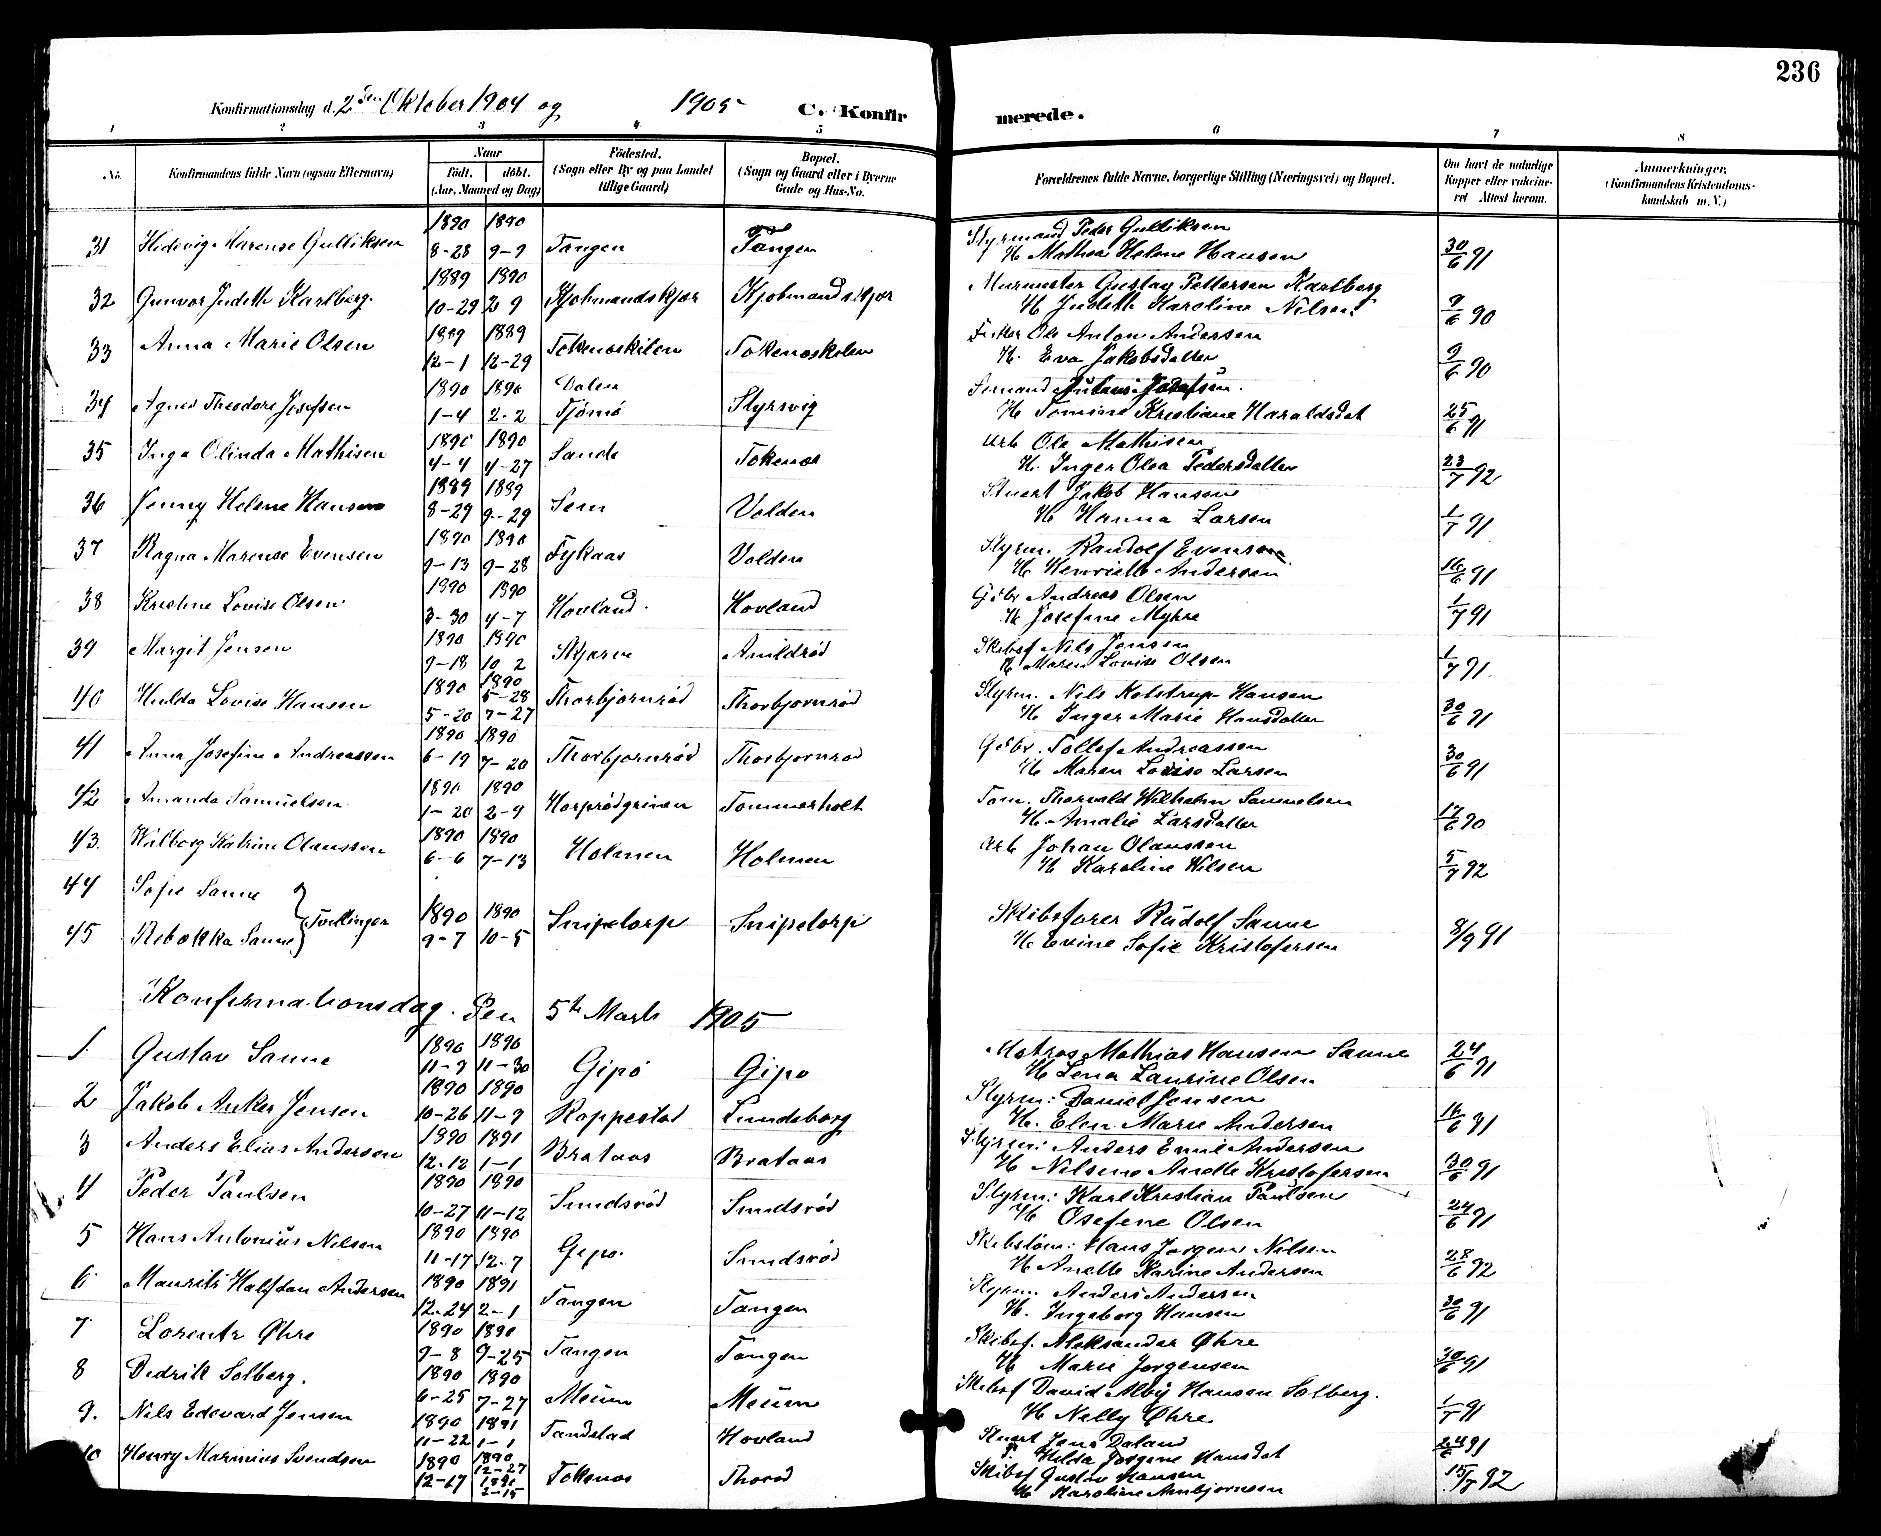 236
Konfirmationsdag d. 2den Oktober 1904 og 1905 C. Konfirmerede.
1 2 3 4 5 6 7 8
No. Konfirmandens fulde Navn (ogsaa Efternavn) Naar födt. döbt. (Aar, Maaned og Dag) Födested. (Sogn eller By og paa Landet tillige Gaard) Bopæl. (Sogn og Gaard eller i Byerne Gade og Hus-No. Forældrenes fulde Navne, borgerlige Stilling (Næringsvei) og Bopæl. Om havt de naturlige Kopper eller vakcineret Attest herom. Anmerkninger, (Konfirmandens Kristendomskundskab m. V.)
31 Hedevig Marense Gulliksen 1890 8-28 1890 9-9 Tangen Tangen Styrmand Peder Gulliksen
H Mathea Helene Hansen 30/6 91
32 Gunvor Judith Karlberg. 1889 10-29 1890 2 9 Kjøbmandskjær Kjøbmandskjær Murmester Gustav Pettersen Karlberg
H Judith Karoline Nilsen 9/6 90
33 Anna Marie Olsen 1889 12-1 1889 12-29 Tokenæskilen Tokenæskilen Ole Anton Andersen
H. Eva Jakobsdatter 9/6 90
34 Agnes Theodore Josefsen 1890 1-4 1890 2-2 Dalen Tjömö Styrsvig Sömand Julius Josefsen.
H Tomine Kristiane Haraldsdat 25/6 91
35 Inga Olinda Mathisen 1890 4-4 1890 4-27 Sande Tokenæs Arb Ole Mathisen
H. Inger Olea Pedersdatter 23/7 92
36 Jenny Helene Hansen 1889 8-29 1889 9-29 Sem Volden Stuert Jakob Hansen
H Hanna Larsen 1/7 91
37 Ragna Marense Evensen 1890 9-13 1890 9-28 Fykaas Volden Styrm. Randolf Evensen
H Henriette Andersen 16/6 91
38 Kristine Lovise Olsen 1890 3-30 1890 4-7 Hovland. Hovland Gdbr Andreas Olsen
H Josefine Myhre 1/7 91
39 Margit Jensen 1890 9-18 1890 10 2 Skjerve Arnildrød Skibsf Nils Jensen
H Maren Lovise Olsen 1/7 91.
40 Hulda Lovise Hansen 1890 5-20 1890 5-28 7-27 Thorbjørnrød Thorbjørnrød Styrm. Nils Kolstrup Hansen
H Inger Marie Hansdatter 30/6 91
41 Anna Josefine Andreassen 1890 6-19 1890 7-20 Thorbjørnrød Thorbjørnrød Gdbr. Tollef Andreassen
H Maren Lovise Larsen 30/6 91
42 Amanda Samuelsen 1890 1-20 1890 2-9 Horprødgrinen Tommerholt Tøm. Thorvald Wilhelm Samuelsen
H. Amalie Larsdatter 17/6 90
43. Wilborg Katrine Olaussen 1890 6-6 1890 7-13 Holmen Holmen Arb Johan Olaussen
H Karoline Nilsen 5/7 92
44 Sofie Sanne
45 Rebekka Sanne } Tvillinger 1890 9-7 1890 10-5 Snipetorp Snipetorp Skibsfører Rudolf Sanne
H. Evine Sofie Kristofersen 8/9 91
Konfirmationsdag. Den 5te Marts 1905
1. Gustav Sanne 1890 11-9 1890 11-30 Gipö Gipø Matros Mathias Hansen Sanne
H Lena Laurine Olsen 24/6 91
2 Jakob Anker Jensen 1890 10-26 1890 11-9 Roppestad Lundeborg Styrm: Daniel Jensen
H. Elen Marie Andersen 16/6 91
3 Anders Elias Andersen 1890 12-12 1891 1-1 Brataas Brataas Styrm: Anders Emil Andersen
H Nilsine Anette Kristofersen 30/6 91
4 Peder Paulsen 1890 10-27 1890 11-12 Sundsrød Sundsrød Styrm: Karl Kristian Paulsen
H Osefene Olsen 24/6 91
5 Hans Antonius Nilsen 1890 11-17 1890 12-7 Gipø. Sundsrød Skibstøm: Hans Jørgen Nilsen
H Anette Karine Andersen 28/6 92
6 Mauritz Halfdan Andersen 1890 12-24 1891 2-1 Tangen Tangen Styrm. Anders Andersen
H. Ingeborg Hansen 30/6 91
7 Lorentz Øhre 1890 9-8 1890 9-25 Tangen Tangen Skibsf. Aleksander Øhre
H Marie Jørgensen 30/6 91
8 Dedrik Solberg. 1890 6-25 1890 7-27 Meum Meum Skibsf David Alby Hansen Solberg.
H Nelly Øhre 1/7 91
9. Nils Edevard Jensen 1890 11-22 1891 1-1 Tandstad Hovland Stuert Jens Daland
Hilda Jørgine Hansdat 24/6 91
10 Henry Marinius Svendsen 1890 12-17 1890 12-27 2-15 Tokenæs Thorød Skibsf Gustav Hansen
H Karoline Anbjørnsen 15/7 92